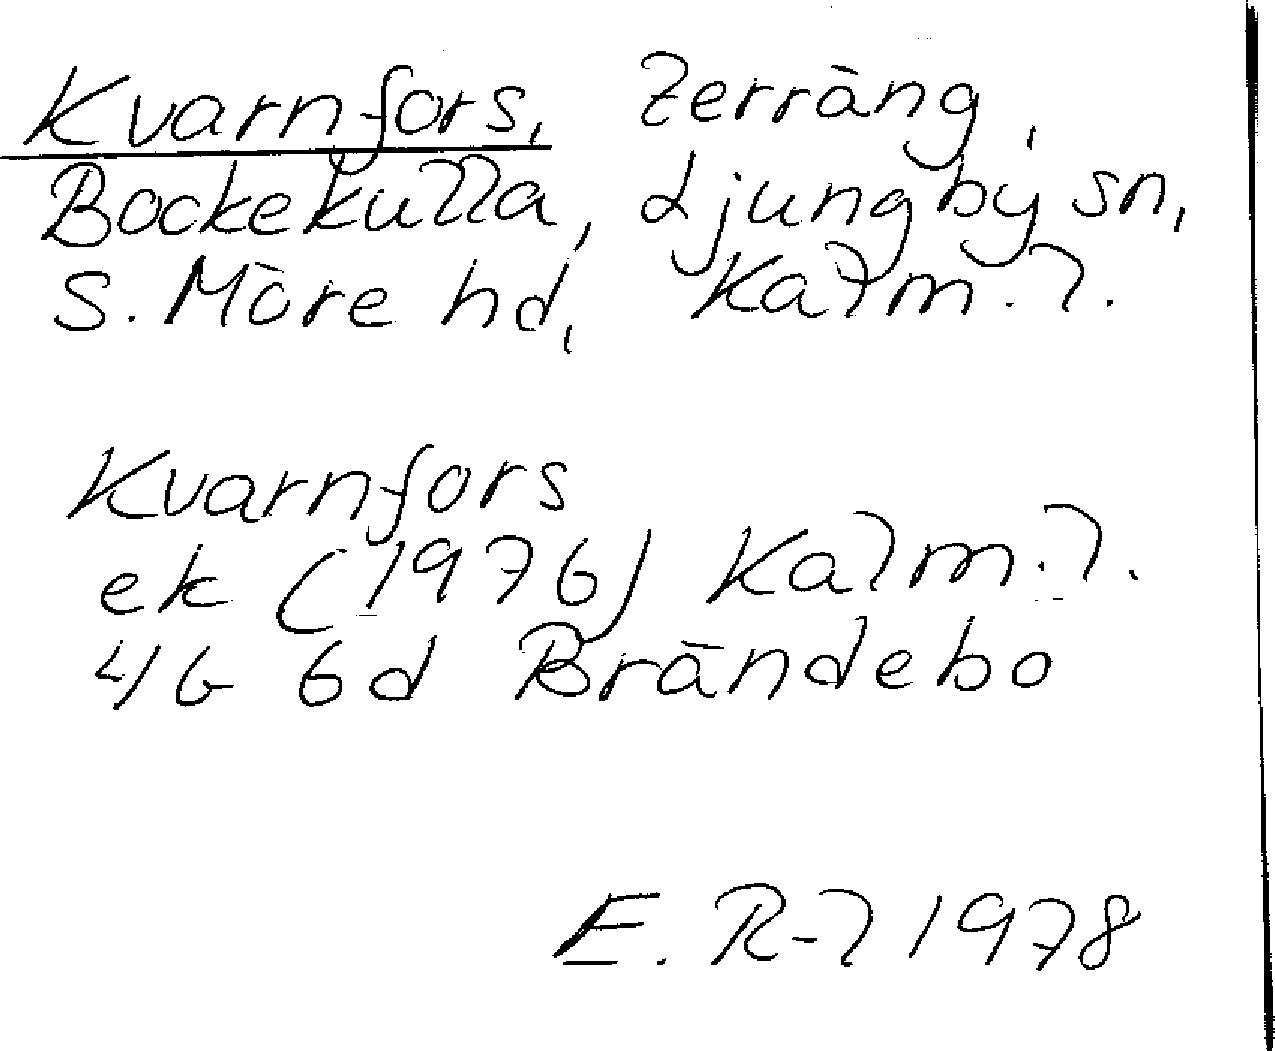 Kvarnfors, Terräng,
Bockekulla, Ljungby sn,
S. Möre hd, Kalm. l.
Kvarnfors
ek (1976) Kalm. l.
4G 6d Brändebo
E. R-l 1978